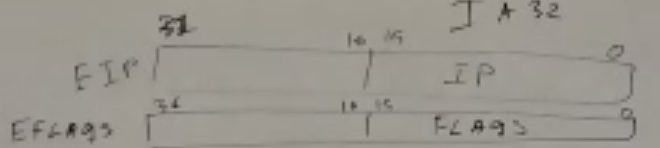 IA32
31 16 15 0
EIP IP
31 16 15 0
EFLAGS FLAGS